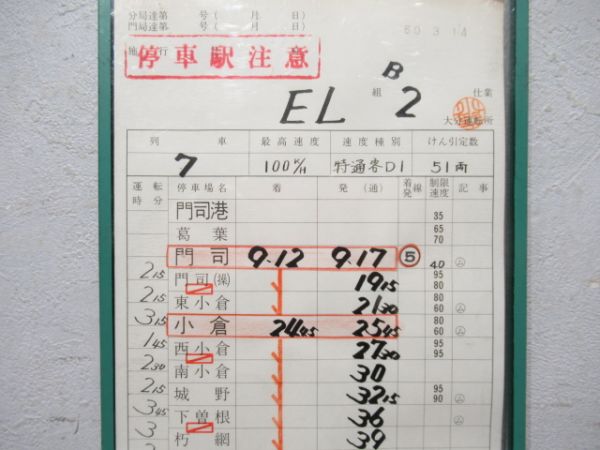 分局達第 号( 月 日)
門局達第 号( 月 日)
60 3 14
施 行
停車駅注意
EL 組 B 2 仕業
大分運転所
列 車 最高速度 速度種別 けん引定数
7 100K/H 特通客D1 51両
運転時分 停車場名 着 発(通) 着発線 制限速度 記事
門司港 35
葛葉 65 70
門司 9.12 9.17 ⑤ 40
2 15 門司(操) 19 15 95 80
2 15 東小倉 21 30 80 60
3 15 小倉 24 45 25 45 80 60
1 45 西小倉 27 30 95 95
2 30 南小倉 30
2 15 城野 32 15 95 90
3 45 下曽根 36
3 朽網 39